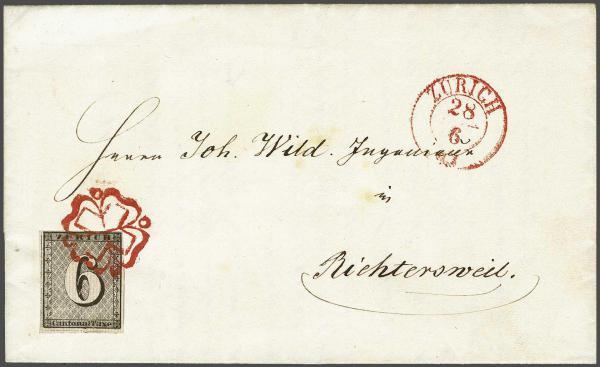 ZÜRICH
28
6
Herrn Joh. Wild. Ingenieur
in
Richtersweil.
ZURICH
6
Cantonal-Taxe